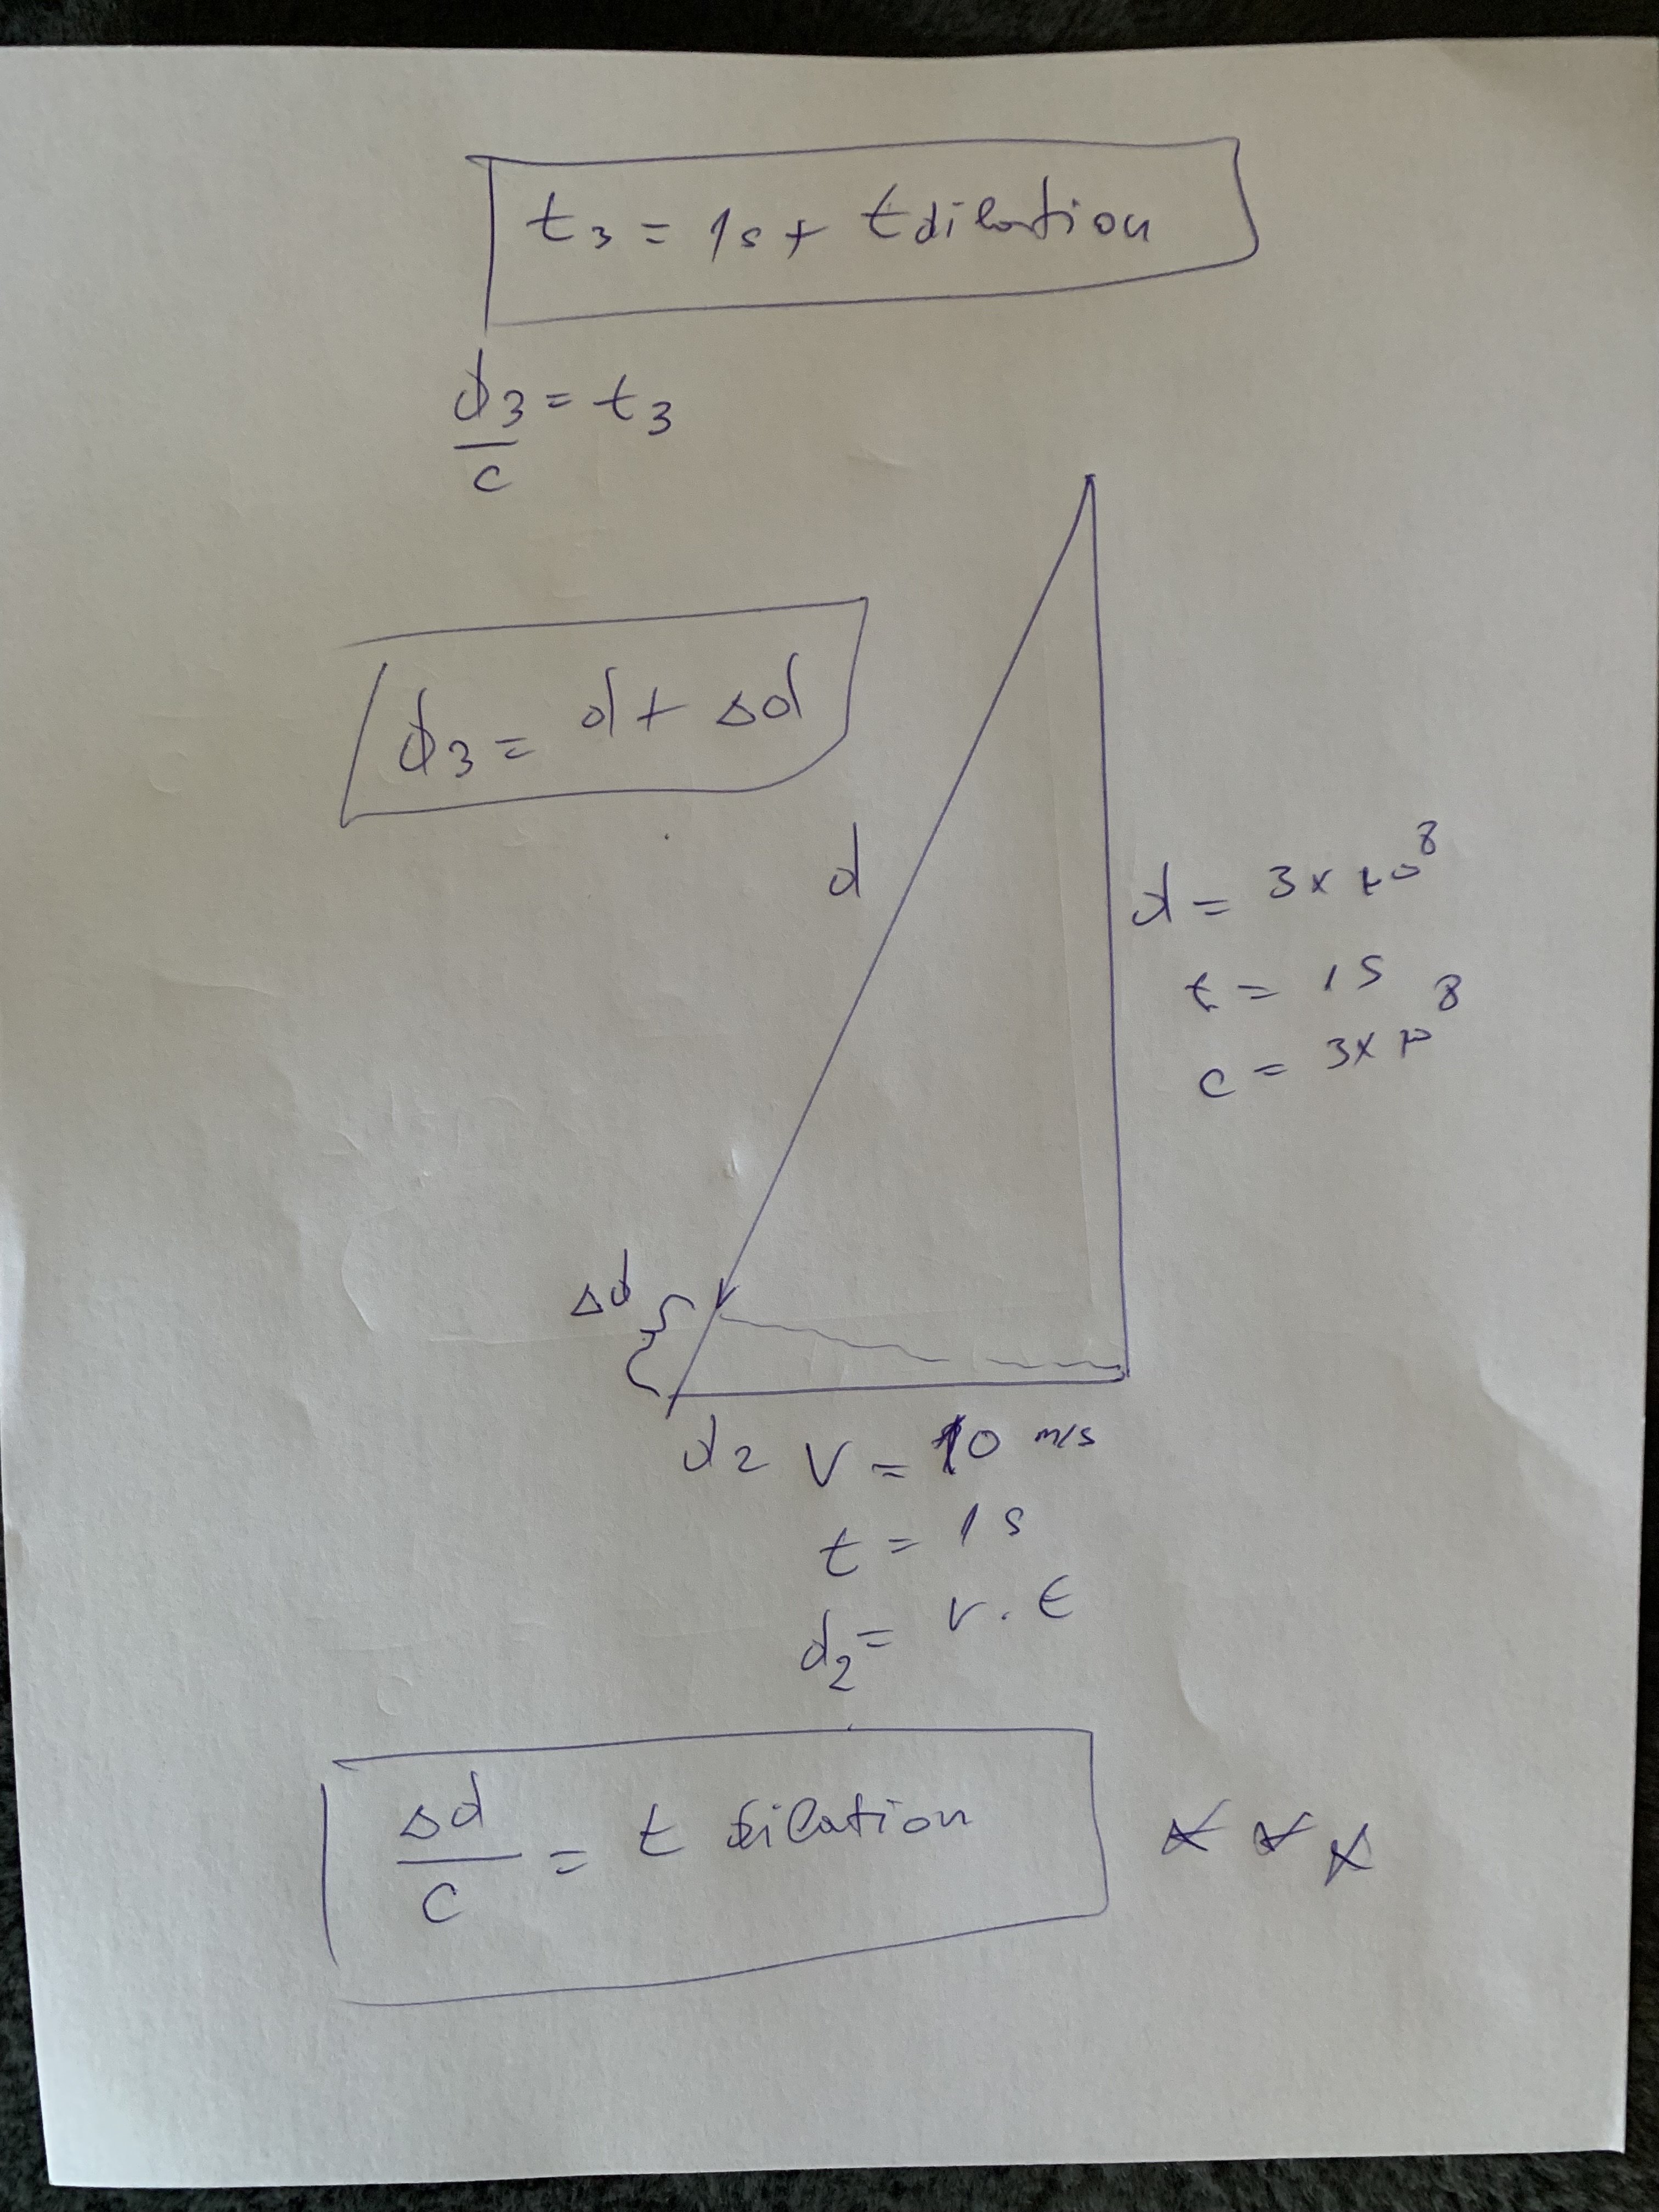 t₃ = 1s + t dilation
d₃/c = t₃
d₃ = d + Δd
d
d = 3 x 10⁸
t = 1s
c = 3x10⁸
Δd
d₂ V = 10 m/s
t = 1s
d₂ = v . t
Δd/c = t dilation